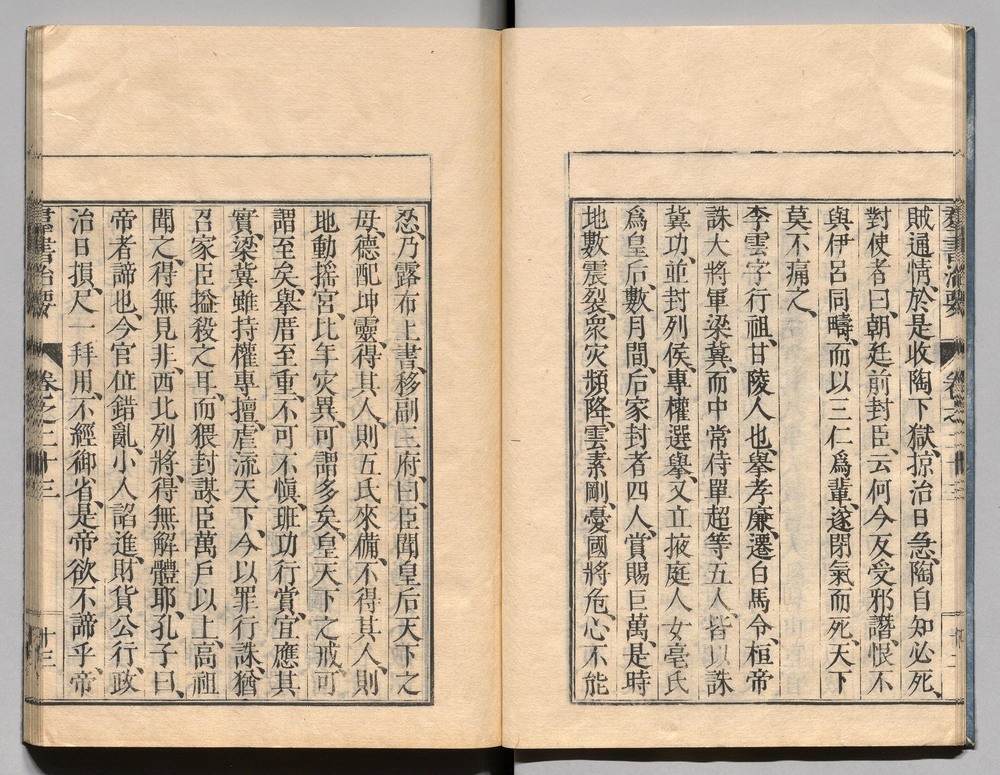 賊通情、於是收陶下獄、掠治日急、陶自知必死、
對使者曰、朝廷前封臣、云何今反受邪譖、恨不
與伊呂同疇、而以三仁爲輩、遂閉氣而死、天下
莫不痛之、
李雲字行祖、甘陵人也、擧孝廉、遷白馬令、桓帝
誅大將軍梁冀、而中常侍單超等五人、皆以誅
冀功、並封列侯、專權選擧、又立掖庭人女亳氏
爲皇后、數月間、后家封者四人、賞賜巨萬、是時
地數震裂、衆灾頻降、雲素剛、憂國將危、心不能
忍、乃露布上書、移副三府、曰、臣聞皇后天下之
母、德配坤靈、得其人、則五氏來備、不得其人、則
地動搖宮、比年灾異、可謂多矣、皇天下之戒、可
謂至矣、擧厝至重、不可不愼、班功行賞、宜應其
實、梁冀雖持權專擅、虐流天下、今以罪行誅、猶
召家臣搤殺之耳、而猥封謀臣萬戶以上、高祖
聞之、得無見非、西北列將、得無解體耶、孔子曰、
帝者諦也、今官位錯亂、小人諂進、財貨公行、政
治日損、尺一拜用、不經御省、是帝欲不諦乎、帝
羣書治要 卷之二十三 十三